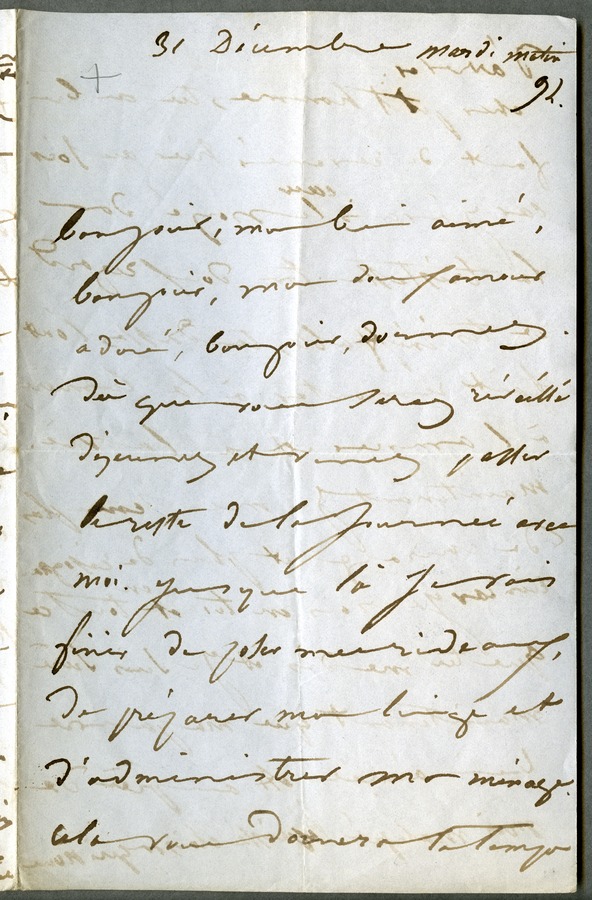 31 Décembre mardi matin
9h.
bonjour, mon bien aimé,
bonjour, mon doux amour
adoré, bonjour, dormez.
Dès que vous serez réveillé
déjeunez et venez passer
le reste de la journée avec
moi. jusque là je vais
finir de poser mes rideaux,
de préparer mon linge et
d'administrer mon ménage.
cela vous donnera le temps